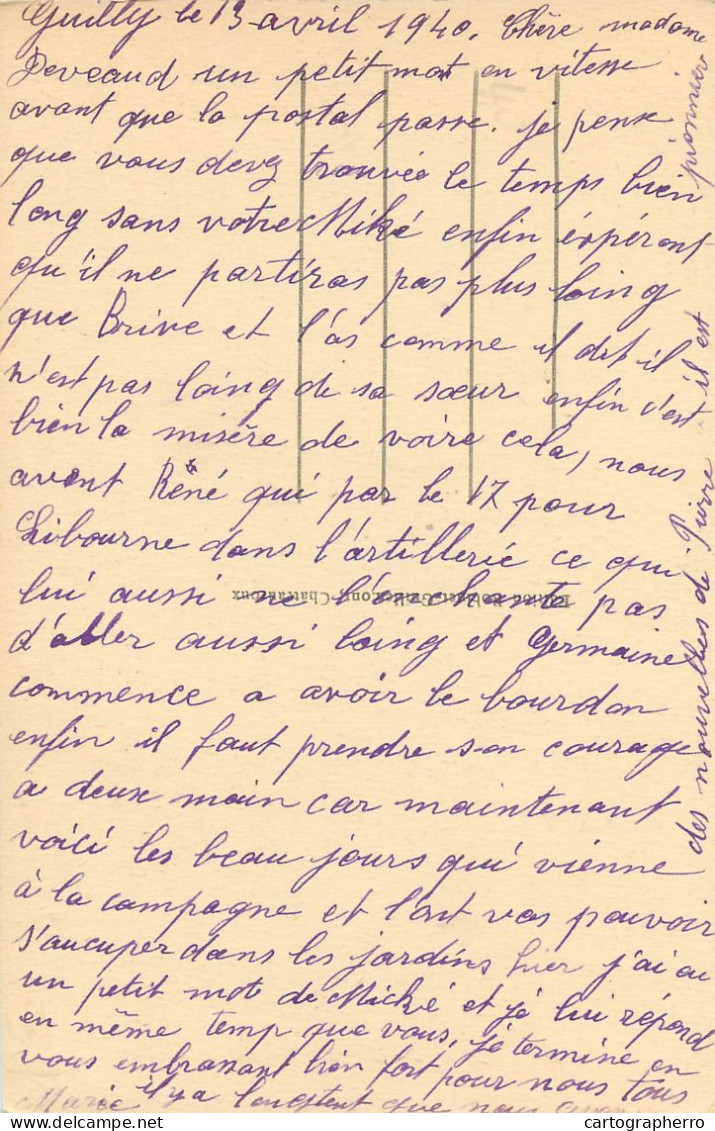 Guilly le 13 avril 1940. Chère madame
Deveaud un petit mot en vitesse
avant que la postal passe. je pense
que vous devez trouvée le temps bien
long sans votre Miké enfin éspéront
qu'il ne partiras pas plus loing
que Brive et l'as comme il dit il
n'est pas loing de sa sœur enfin c'est
bien la misère de voire cela, nous
avont Réné qui par le 17 pour
Libourne dans l'artillerie ce qui
lui aussi ne l'éxchante pas
d'aller aussi loing et Germaine
commence a avoir le bourdon
enfin il faut prendre son courage
a deux main car maintenant
voici les beau jours qui vienne
à la campagne et l'ont vas pouvoir
s'aucuper dans les jardins hier j'ai au
un petit mot de Mické et je lui répond
en même temp que vous, je termine en
vous embrassant bien fort pour nous tous
Marie il y a longtent que nous
des nouvelles de Pierre il est pionnier
Châteauroux
cartographero.com